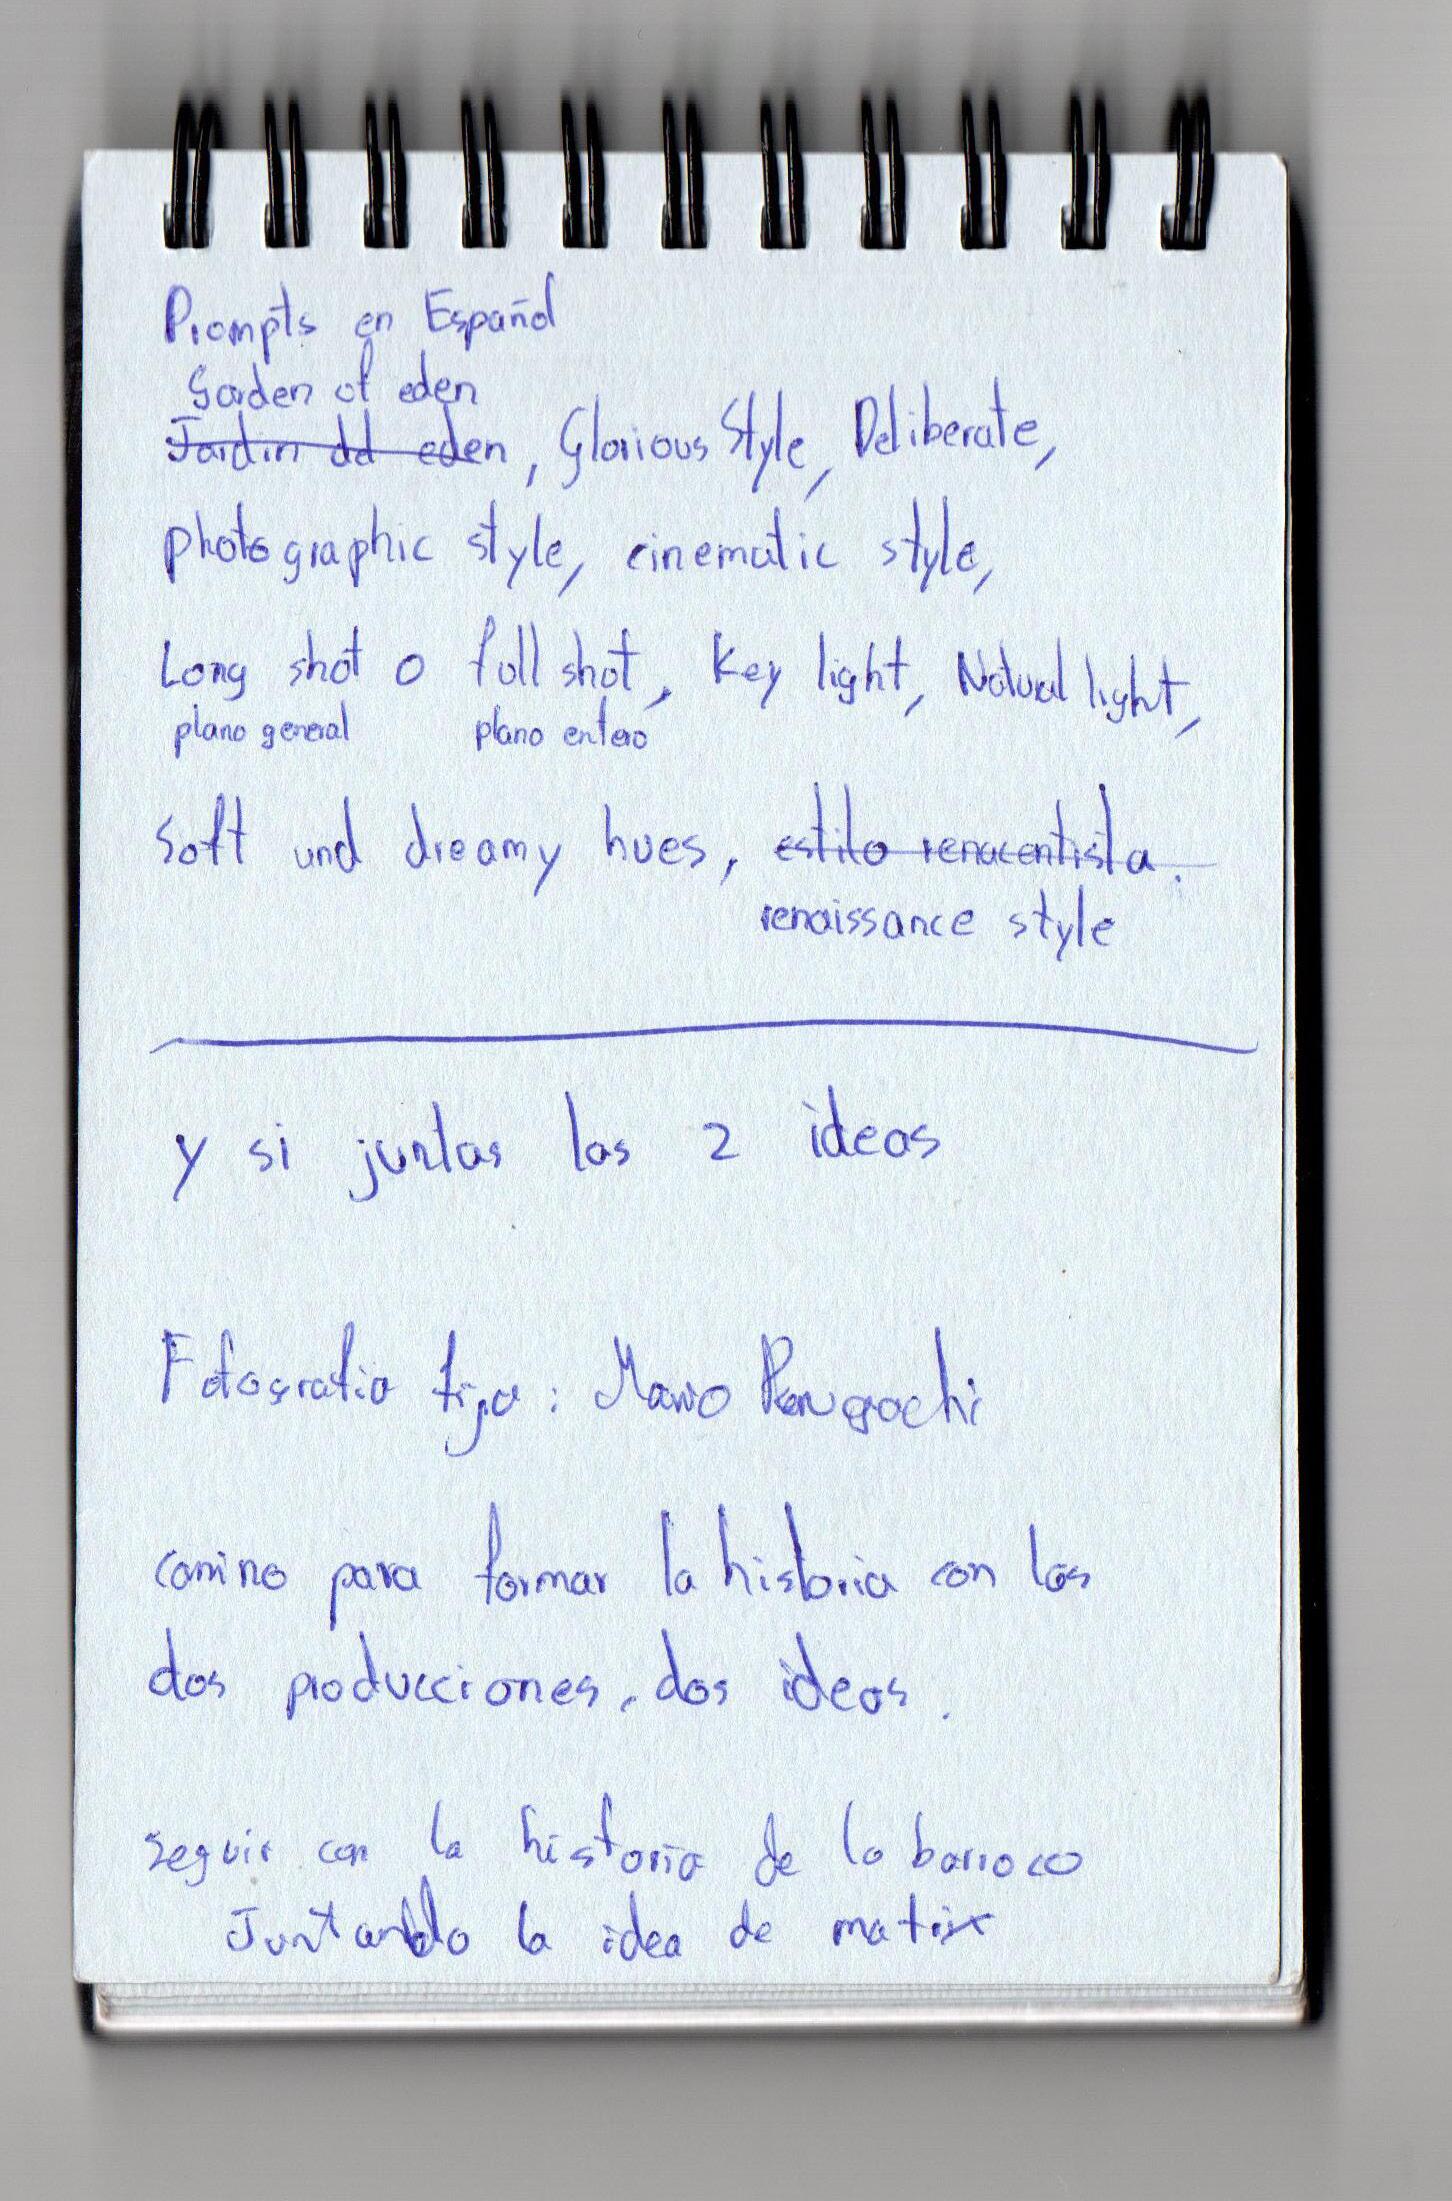 Prompts en Español
Garden of eden
Jardin del eden, Glorious Style, Deliberate,
photographic style, cinematic style,
Long shot o full shot, Key light, Natural light,
plano general plano entero
Soft and dreamy hues, estilo renacentista.
renaissance style
y si juntas las 2 ideas
Fotografia fija: Mario
camino para formar la historia con las
dos producciones, dos ideas.
seguir con la historia de lo barroco
Juntando la idea de matrix